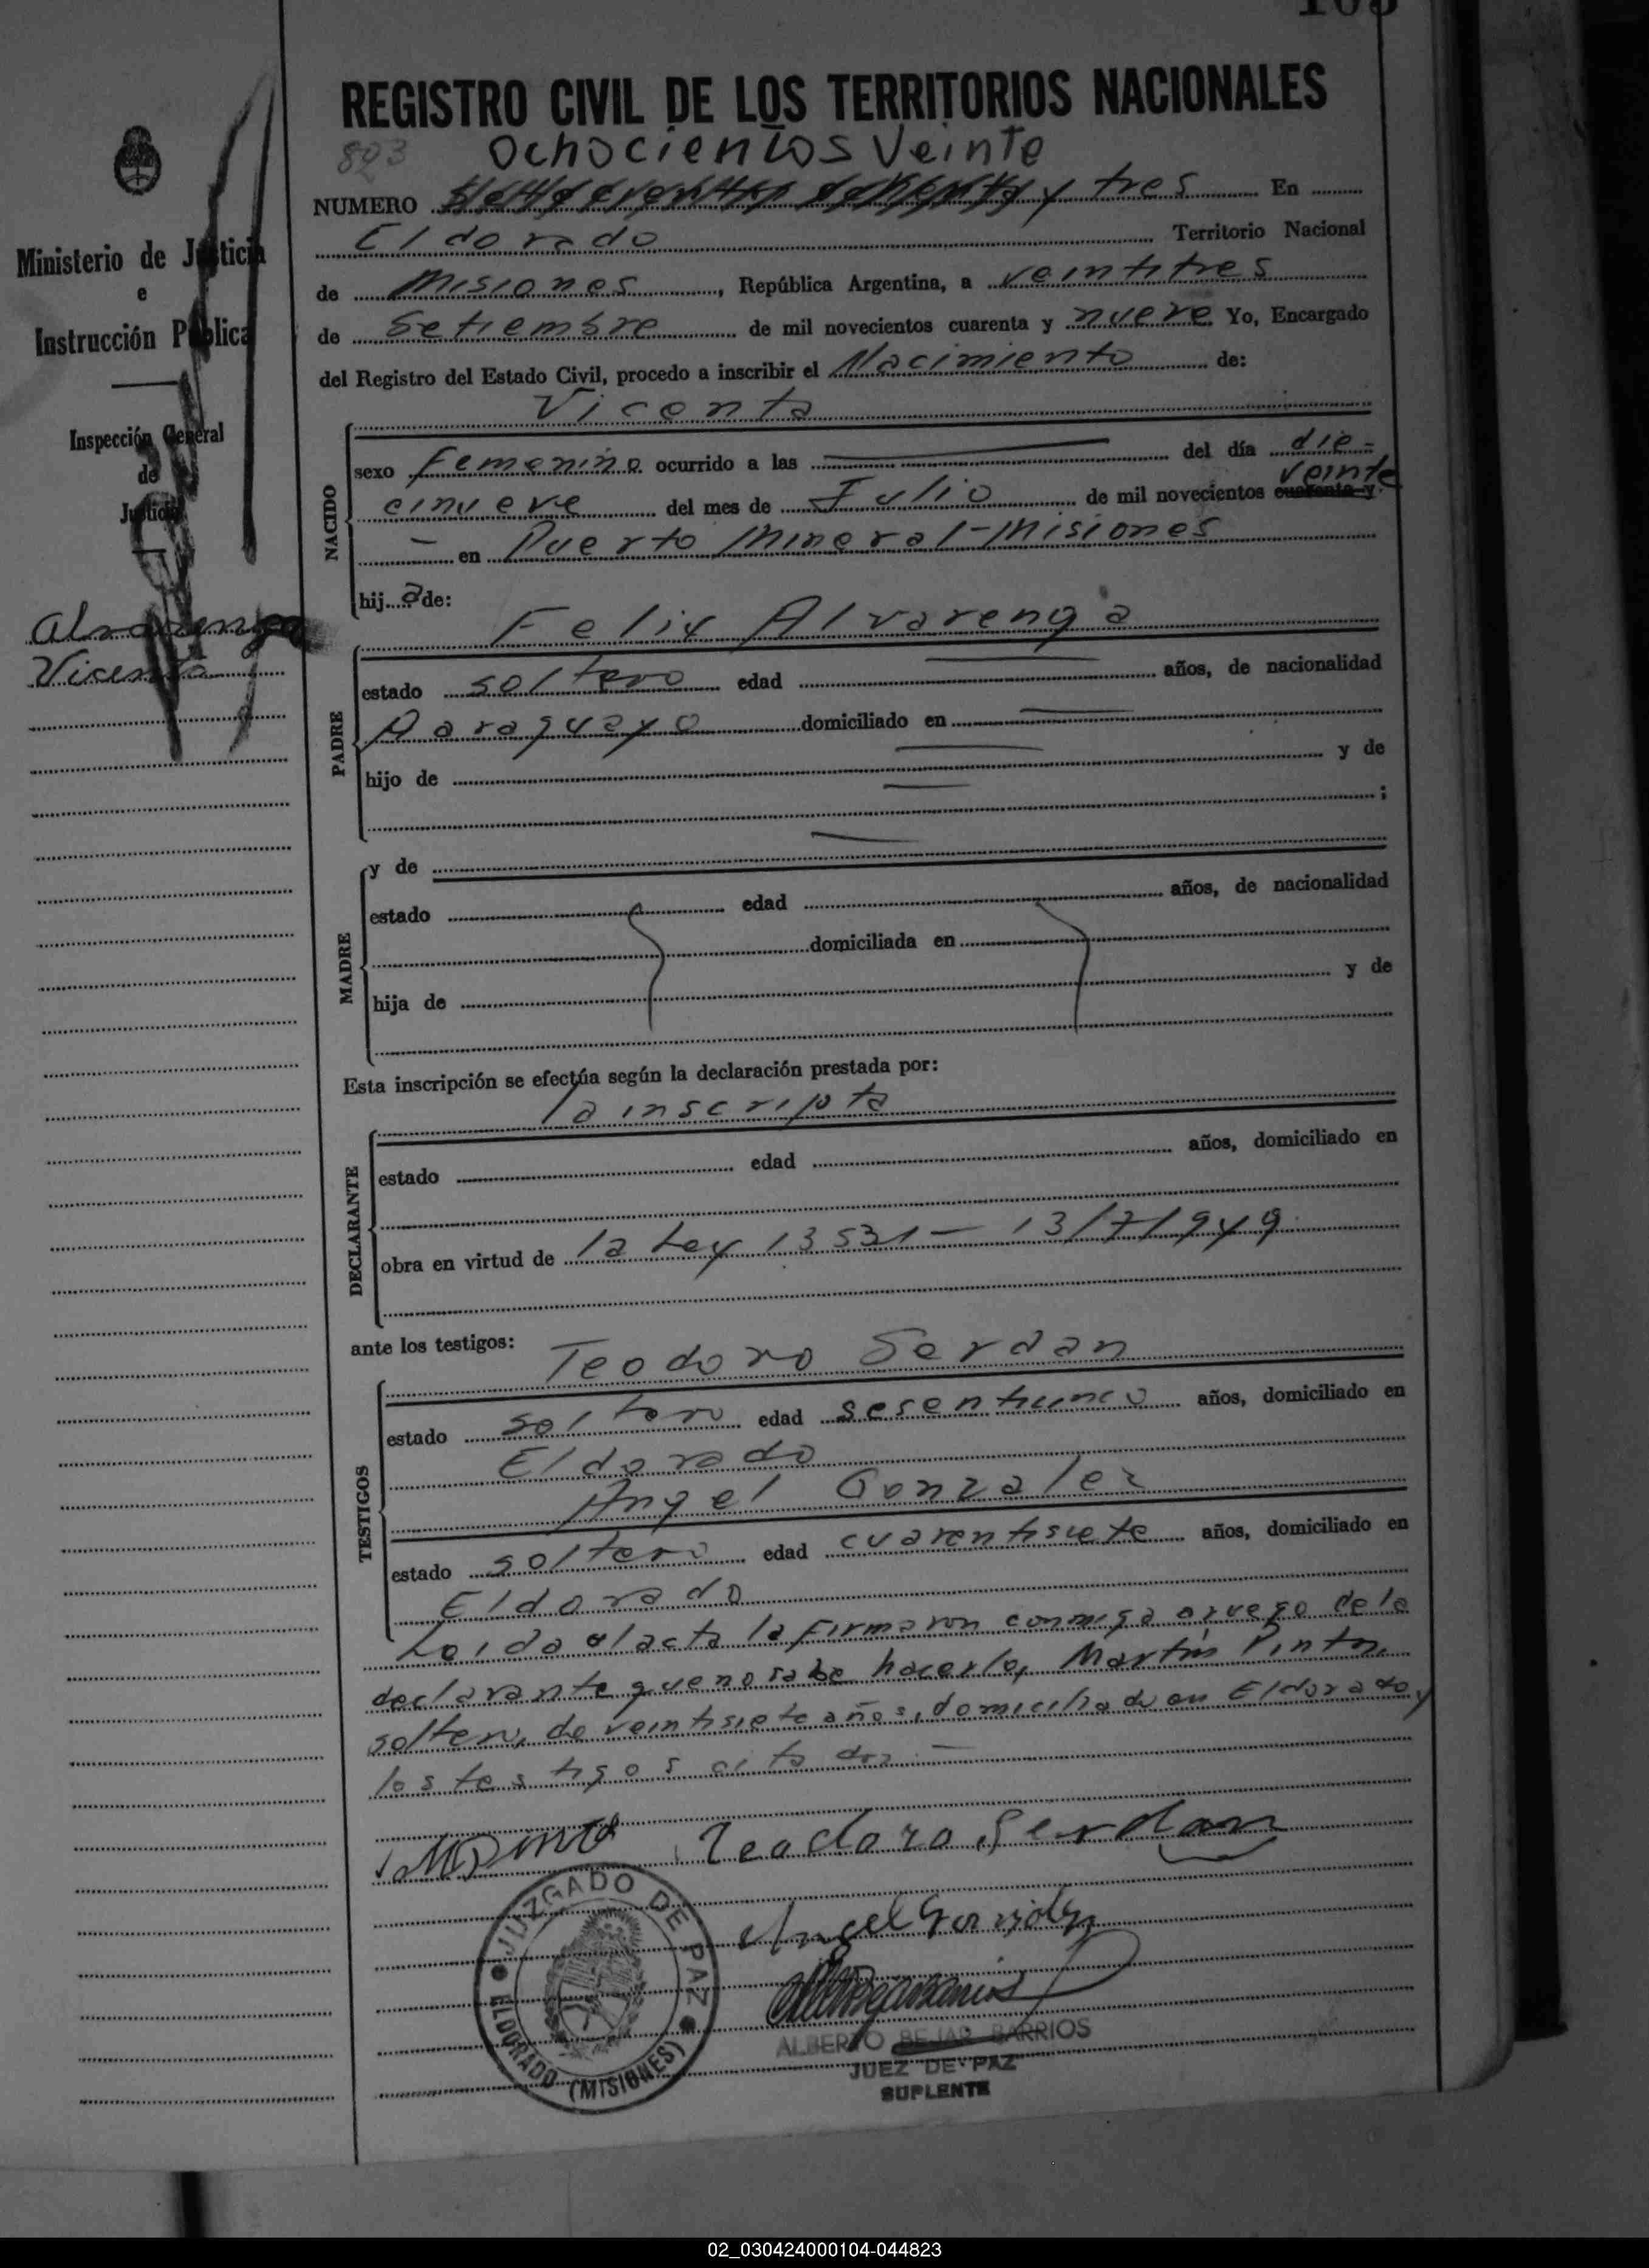 103
REGISTRO CIVIL DE LOS TERRITORIOS NACIONALES
803
Ochocientos Veinte
NUMERO y tres En
Eldorado Territorio Nacional
de Misiones, República Argentina, a veintitres
de Setiembre de mil novecientos cuarenta y nueve Yo, Encargado
del Registro del Estado Civil, procedo a inscribir el Nacimiento de:
Vicenta
NACIDO
sexo Femenino ocurrido a las del día die=
veinte
cinueve del mes de Julio de mil novecientos cuarenta y
- en Puerto Mineral-Misiones
hij a de:
Felix Alvarenga
PADRE
estado soltero edad años, de nacionalidad
Paraguayo domiciliado en
hijo de y de
;
MADRE
y de
estado edad años, de nacionalidad
domiciliada en
hija de y de
Esta inscripción se efectúa según la declaración prestada por:
la inscripta
DECLARANTE
estado edad años, domiciliado en
obra en virtud de la Ley 13531 - 13/7/949
ante los testigos:
Teodoro Serdan
TESTIGOS
estado soltero edad sesenticinco años, domiciliado en
Eldorado
Angel Gonzalez
estado soltero edad cuarentisiete años, domiciliado en
Eldorado
Leida el acta la firmaron conmigo a ruego de la
declarante que no sabe hacerlo, Martin Pinto,
soltero, de veintisiete años, domiciliado en Eldorado y
los testigos citados.-
MPinto Teodoro Serdan
Angel Gonzalez
JUZGADO DE PAZ
ELDORADO (MISIONES)
ALBERTO BEJAR BARRIOS
JUEZ DE PAZ
SUPLENTE
Ministerio de Justicia
e
Instrucción Pública
Inspección General
de
Justicia
Alvarenga
Vicenta
02_030424000104-044823